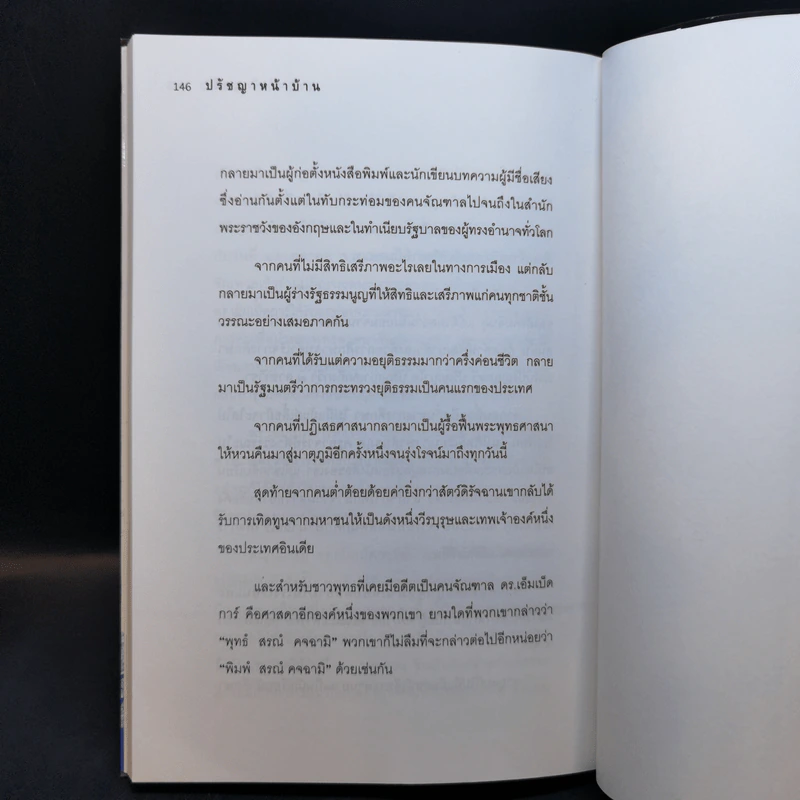 146 ปรัชญาหน้าบ้าน
กลายมาเป็นผู้ก่อตั้งหนังสือพิมพ์และนักเขียนบทความผู้มีชื่อเสียง
ซึ่งอ่านกันตั้งแต่ในทับกระท่อมของคนจัณฑาลไปจนถึงในสำนัก
พระราชวังของอังกฤษและในทำเนียบรัฐบาลของผู้ทรงอำนาจทั่วโลก
จากคนที่ไม่มีสิทธิเสรีภาพอะไรเลยในทางการเมือง แต่กลับ
กลายมาเป็นผู้ร่างรัฐธรรมนูญที่ให้สิทธิและเสรีภาพแก่คนทุกชาติชั้น
วรรณะอย่างเสมอภาคกัน
จากคนที่ได้รับแต่ความอยุติธรรมมากว่าครึ่งค่อนชีวิต กลาย
มาเป็นรัฐมนตรีว่าการกระทรวงยุติธรรมเป็นคนแรกของประเทศ
จากคนที่ปฏิเสธศาสนากลายมาเป็นผู้รื้อฟื้นพระพุทธศาสนา
ให้หวนคืนมาสู่มาตุภูมิอีกครั้งหนึ่งจนรุ่งโรจน์มาถึงทุกวันนี้
สุดท้ายจากคนต่ำต้อยด้อยค่ายิ่งกว่าสัตว์ดิรัจฉานเขากลับได้
รับการเทิดทูนจากมหาชนให้เป็นดังหนึ่งวีรบุรุษและเทพเจ้าองค์หนึ่ง
ของประเทศอินเดีย
และสำหรับชาวพุทธที่เคยมีอดีตเป็นคนจัณฑาล ดร.เอ็มเบ็ด
การ์ คือศาสดาอีกองค์หนึ่งของพวกเขา ยามใดที่พวกเขากล่าวว่า
“พุทธํ สรณํ คจฉามิ” พวกเขาก็ไม่ลืมที่จะกล่าวต่อไปอีกหน่อยว่า
“พิมพํ สรณํ คจฉามิ” ด้วยเช่นกัน